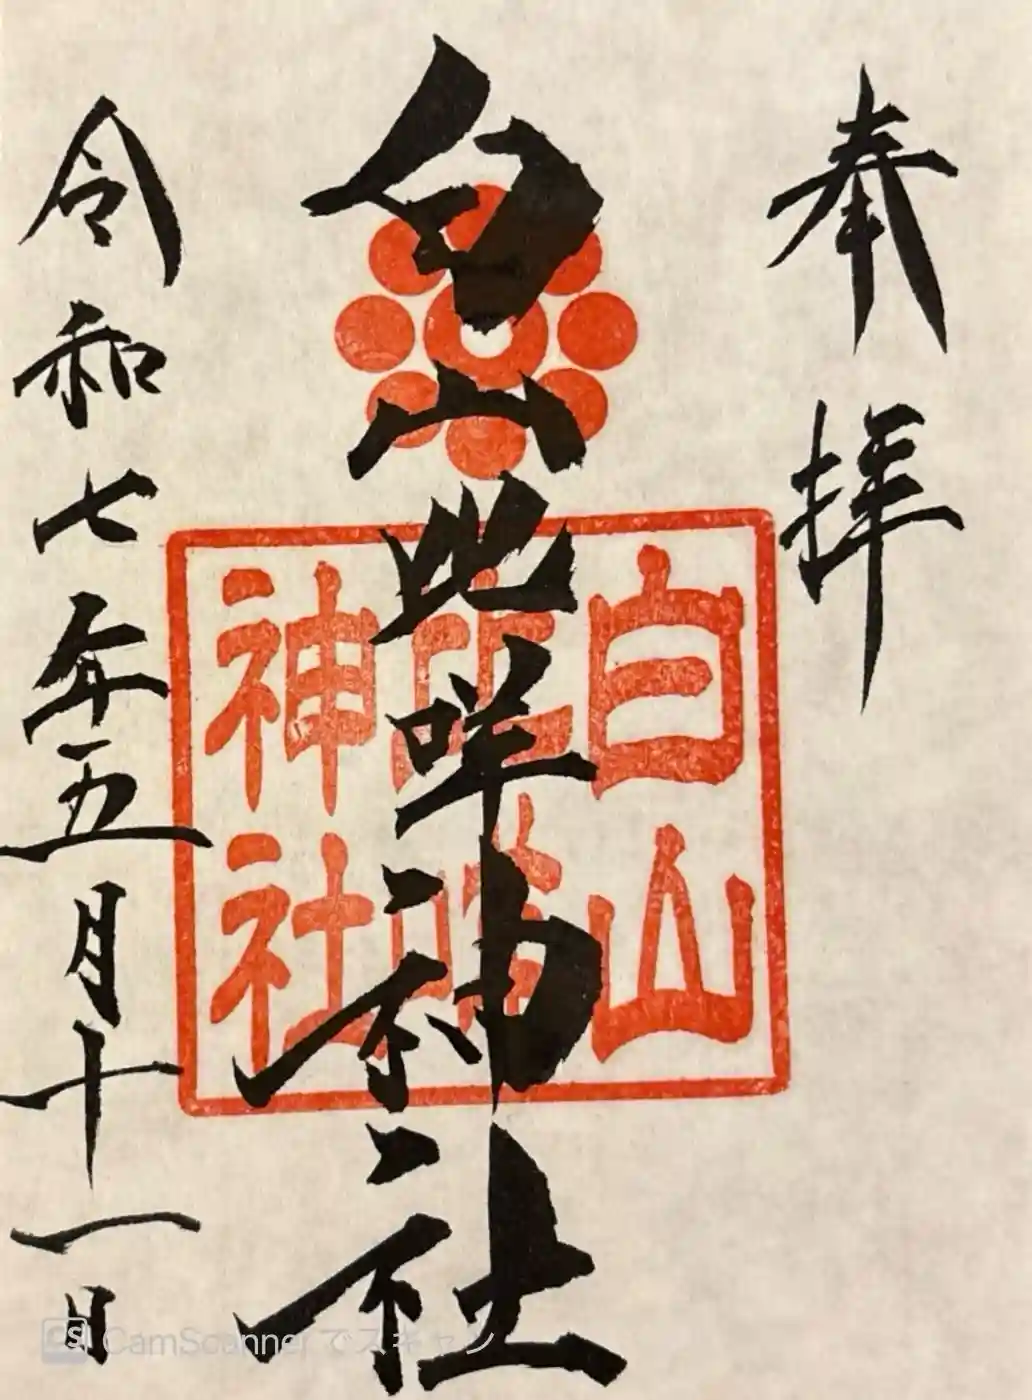 奉拝
白山比咩神社
白山
比咩
神社
令和七年五月十一日
CS CamScannerでスキャン